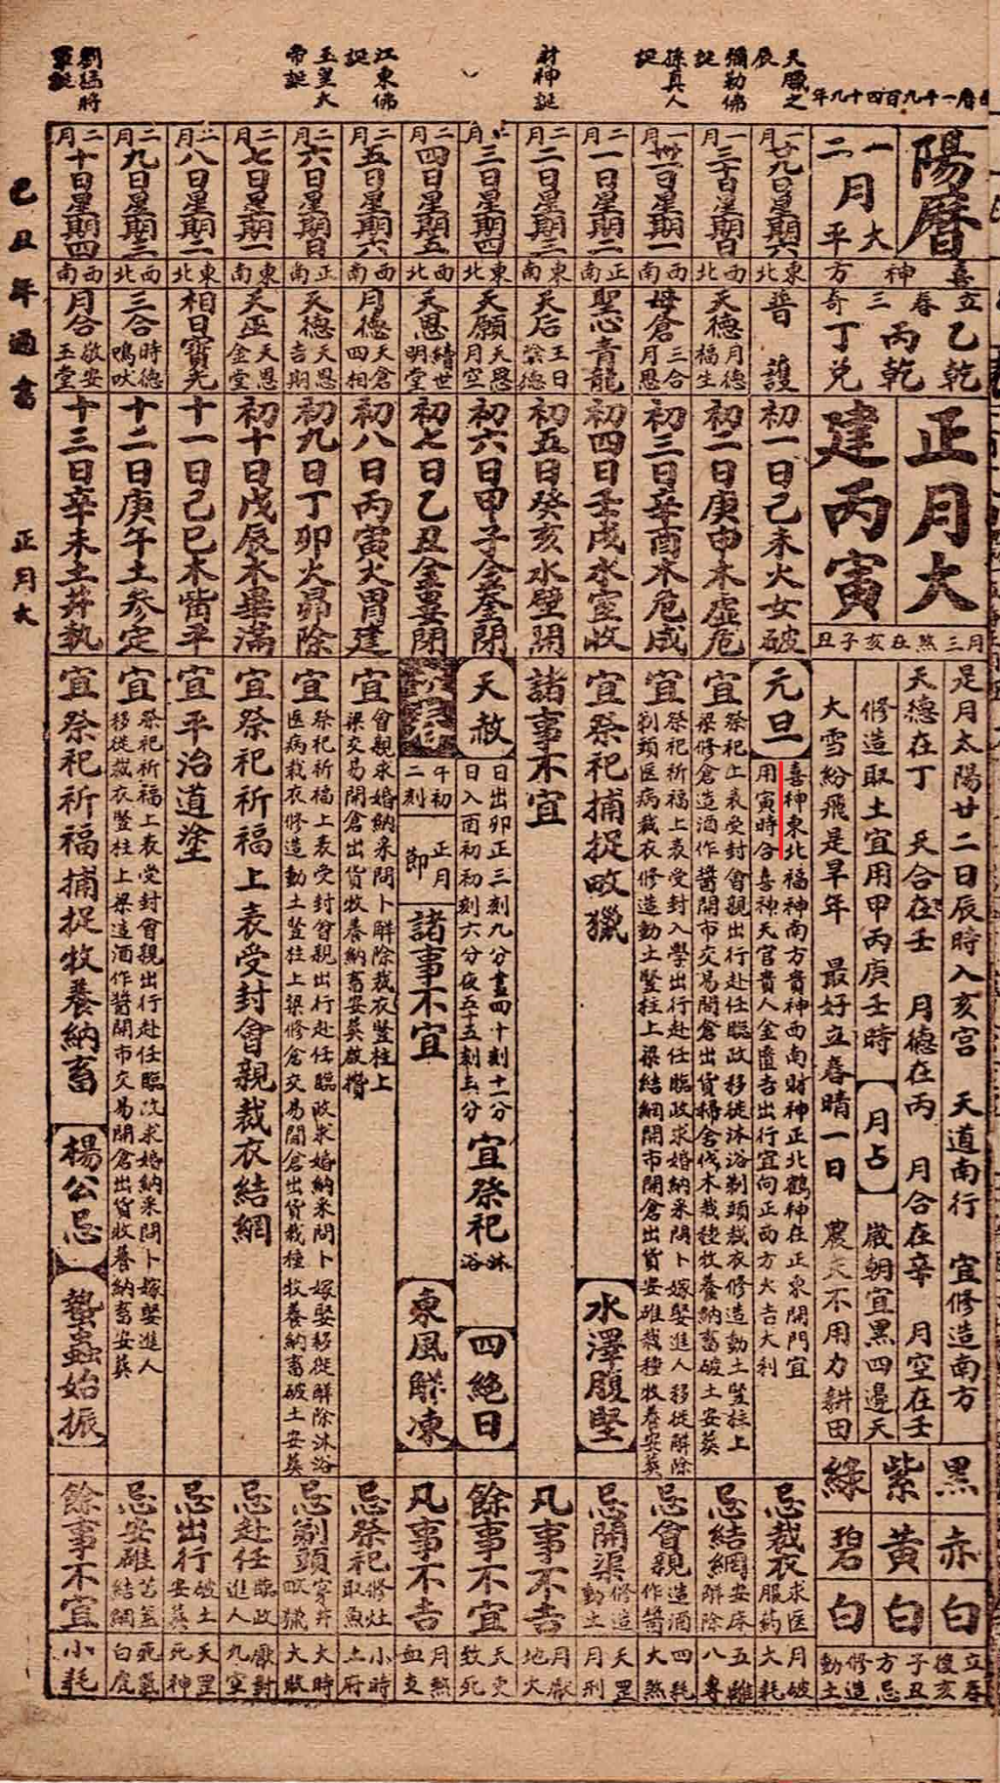 天臘之辰
彌勒佛誕
孫真人誕
財神誕
江東佛誕
玉皇大帝誕
劉猛將軍誕
己丑年通書 正月大
陽曆
一月大
二月平
喜神方
立春三奇
乙乾
丙乾
丁兌
正月大
建丙寅
月三煞在亥子丑
是月太陽廿二日辰時入亥宮 天道南行 宜修造南方
天德在丁 天合在壬 月德在丙 月合在辛 月空在壬
修造取土宜用甲丙庚壬時
月占
歲朝宜黑四邊天
大雪紛飛是旱年 最好立春晴一日 農夫不用力耕田
黑 紫 綠
赤 黃 碧
白 白 白
立春後亥子丑方忌修造動土
一月廿九日星期六
東北
普護
初一日己未火女破
元旦
喜神東北福神南方貴神西南財神正北鶴神在正東開門宜
用寅時合喜神天官貴人金匱吉出行宜向正西方大吉大利
忌裁衣求医服药
月破大耗
一月三十日星期日
西北
天德月德福生
初二日庚申木虛危
宜祭祀上表受封會親出行赴任臨政移徙沐浴剃頭裁衣修造動土豎柱上
梁修倉造酒作醬開市交易開倉出貨掃舍伐木栽種牧養納畜破土安葬
忌結網安床解除
五離八專
一月卅一日星期一
西南
母倉三合月恩
初三日辛酉木危成
宜祭祀祈福上表受封入學出行赴任臨政求婚納采問卜嫁娶進人移徙解除
剃頭医病裁衣修造動土豎柱上梁結網開市開倉出貨安碓栽種牧養安葬
忌會親造酒作醬
四耗大煞
二月一日星期二
正南
聖心青龍
初四日壬戌水室收
宜祭祀捕捉畋獵
水澤腹堅
忌開渠修造動土
天罡月刑
二月二日星期三
東南
天后王日陰德
初五日癸亥水壁開
諸事不宜
凡事不吉
月厭地火
二月三日星期四
東北
天願天恩月空
初六日甲子金奎閉
天赦
日出卯正三刻九分晝四十刻十一分
日入酉初初刻六分夜五十五刻 分
宜祭祀沐浴
四絕日
餘事不宜
天吏致死
二月四日星期五
西北
天恩續世明堂
初七日乙丑金婁閉
立春
午初二刻
正月節
諸事不宜
東風解凍
凡事不吉
月煞血支
二月五日星期六
西南
月德天倉四相
初八日丙寅火胃建
宜會親求婚納采問卜解除裁衣豎柱上
梁交易開倉出貨牧養納畜安葬啟攢
忌祭祀修灶取魚
小時土府
二月六日星期日
正南
天德天恩吉期
初九日丁卯火昴除
宜祭祀祈福上表受封會親出行赴任臨政求婚納采問卜嫁娶移徙解除沐浴
医病裁衣修造動土豎柱上梁修倉交易開倉出貨栽種牧養納畜破土安葬
忌剃頭穿井畋獵
大時大敗
二月七日星期一
東南
天巫天恩金堂
初十日戊辰木畢滿
宜祭祀祈福上表受封會親裁衣結網
忌赴任臨政進人
厭對九空
二月八日星期二
東北
相日寶光
十一日己巳木觜平
宜平治道塗
忌出行破土安葬
天罡死神
二月九日星期三
西北
三合時德鳴吠
十二日庚午土參定
宜祭祀祈福上表受封會親出行赴任臨政求婚納采問卜嫁娶進人
移徙裁衣豎柱上梁造酒作醬開市交易開倉出貨牧養納畜安葬
忌安碓苫蓋結網
死氣白虎
二月十日星期四
西南
月合敬安玉堂
十三日辛未土井執
宜祭祀祈福捕捉牧養納畜
楊公忌
蟄蟲始振
餘事不宜
小耗